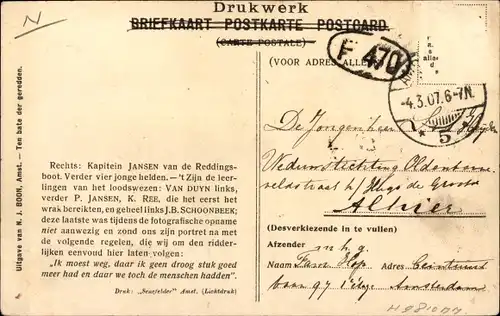 Drukwerk
BRIEFKAART POSTKARTE POSTCARD.
(CARTE POSTALE)
F 470
(VOOR ADRES
-4.3.07.6-7N.
5
De Jongeheer
Alhier
(Desverkiezende in te vullen)
Afzender m h g
Naam Fam Hop Adres Ceintuur
baan 97 Amsterdam
Uitgave van N. J. BOON, Amst. — Ten bate der geredden.
Rechts: Kapitein JANSEN van de Reddings-
boot. Verder vier jonge helden. — 't Zijn de leer-
lingen van het loodswezen: VAN DUYN links,
verder P. JANSEN, K. REE, die het eerst het
wrak bereikten, en geheel links J.B. SCHOONBEEK;
deze laatste was tijdens de fotografische opname
niet aanwezig en zond ons zijn portret na met
de volgende regelen, die wij om den ridder-
lijken eenvoud hier laten volgen:
"Ik moest weg, daar ik geen droog stuk goed
meer had en daar we toch de menschen hadden".
Druk: „Senefelder" Amst. (Lichtdruk)